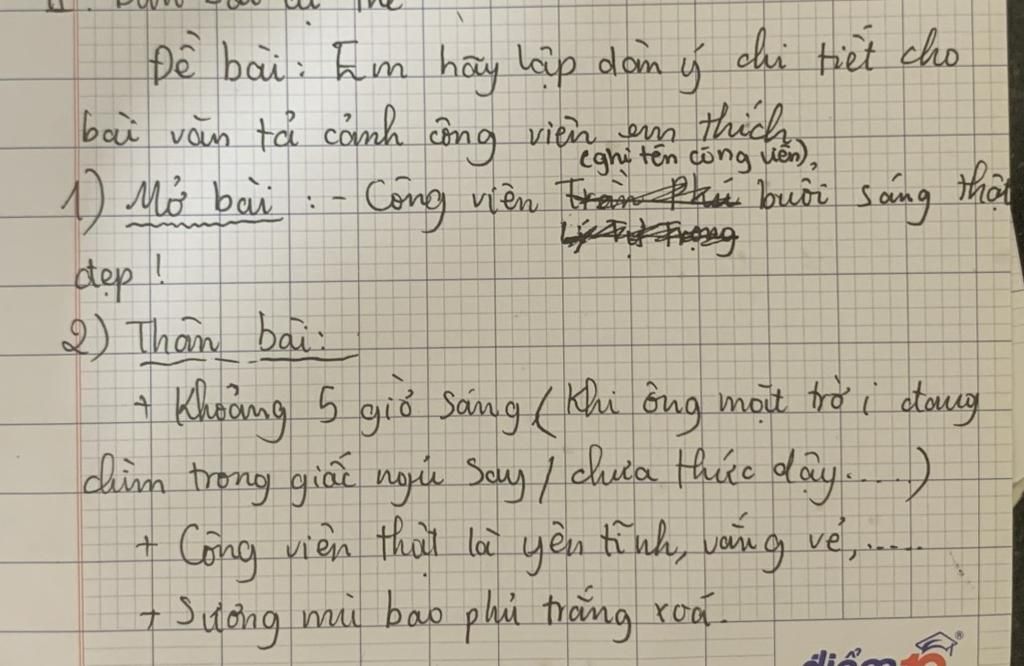 Đề bài: Em hãy lập dàn ý chi tiết cho
bài văn tả cảnh công viên em thích
(ghi tên công viên),
1) Mở bài : - Công viên Trần Phú buổi sáng thật
Lý Tự Trọng
đẹp !
2) Thân bài:
+ Khoảng 5 giờ sáng ( Khi ông mặt trời đang
chìm trong giấc ngủ say / chưa thức dậy.....)
+ Công viên thật là yên tĩnh, vắng vẻ,.....
+ Sương mù bao phủ trắng xoá.
điểm 10